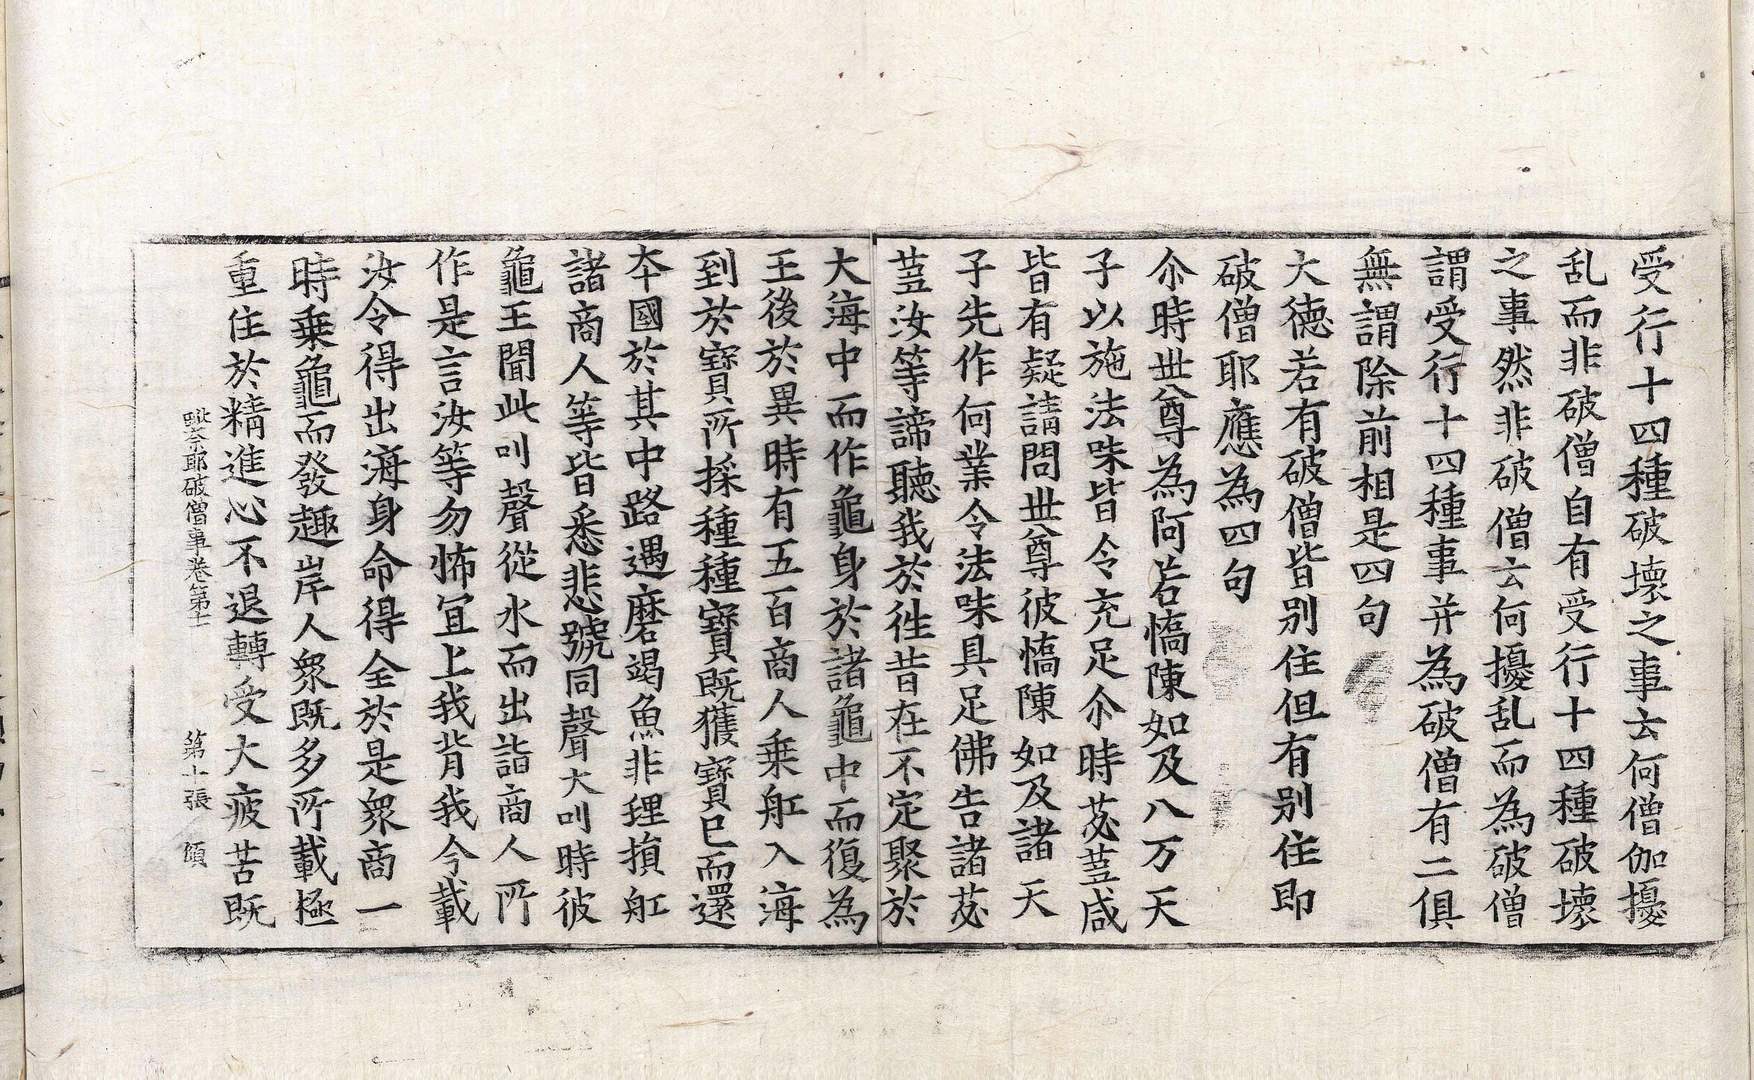 受行十四種破壞之事云何僧伽擾
乱而非破僧自有受行十四種破壞
之事然非破僧云何擾乱而為破僧
謂受行十四種事并為破僧有二俱
無謂除前相是四句
大德若有破僧皆別住但有別住即
破僧耶應為四句
尒時世尊為阿若憍陳如及八万天
子以施法味皆令充足尒時苾蒭咸
皆有疑請問世尊彼憍陳如及諸天
子先作何業令法味具足佛告諸苾
蒭汝等諦聽我於徃昔在不定聚於
大海中而作龜身於諸龜中而復為
王後於異時有五百商人乗舡入海
到於寳所採種種寳既獲寳已而還
夲國於其中路遇磨竭魚非理損舡
諸商人等皆悉悲號同聲大叫時彼
龜王聞此叫聲從水而出詣商人所
作是言汝等勿怖冝上我背我今載
汝令得出海身命得全於是衆商一
時乗龜而發趣岸人衆既多所載極
重住於精進心不退轉受大疲苦既
毗奈耶破僧事卷第十一 第十張 傾